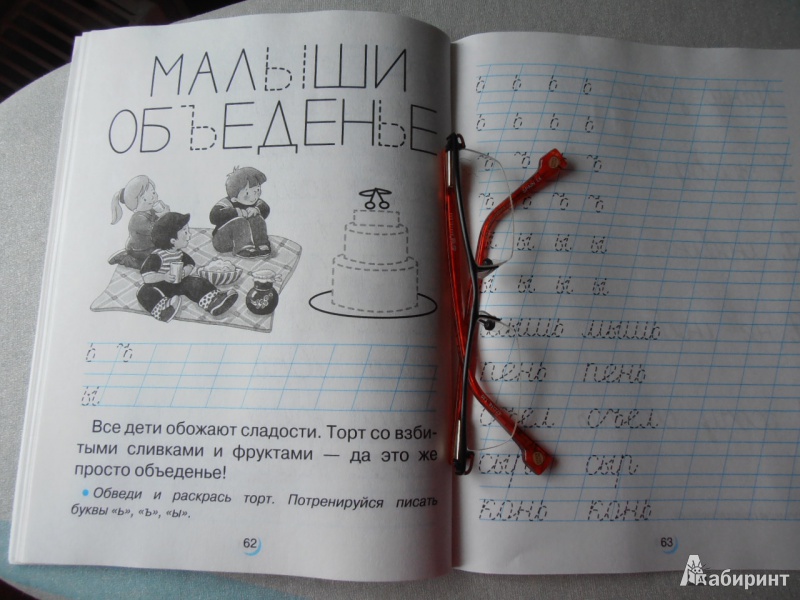 МАЛЫШИ
ОБЪЕДЕНЬЕ
ь ъ
ы
Все дети обожают сладости. Торт со взби-
тыми сливками и фруктами — да это же
просто объеденье!
Обведи и раскрась торт. Потренируйся писать
буквы «ь», «ъ», «ы».
62
ь ь ь ь
ь ь ь ь
ъ ъ ъ ъ
ъ ъ ъ ъ
ы ы ы ы
ы ы ы ы
мышь мышь
пень пень
съел съел
сыр сыр
конь конь
63
Лабиринт